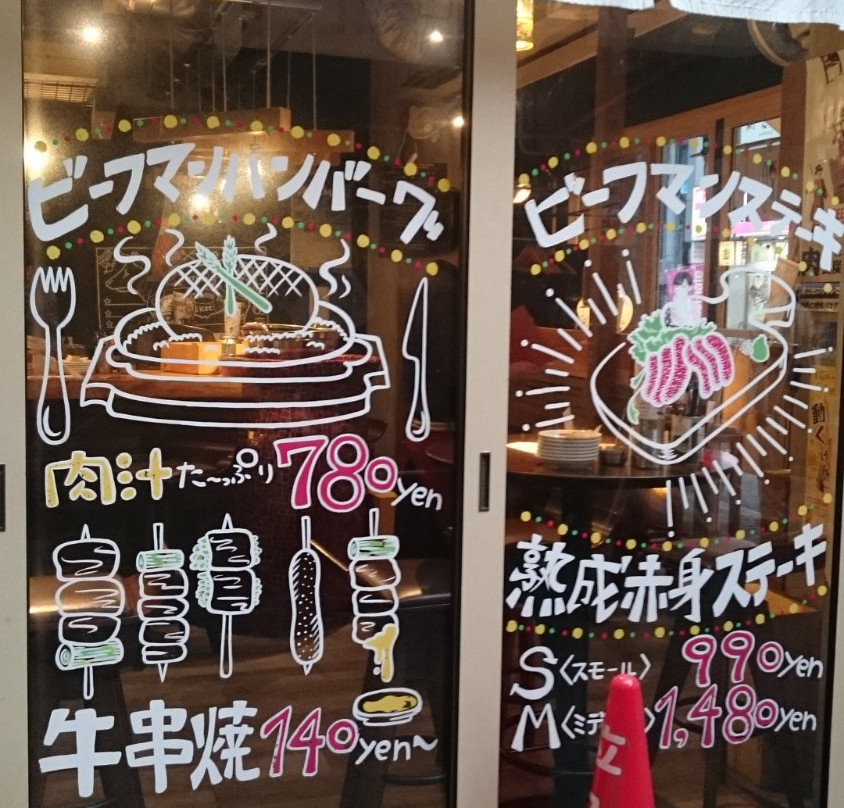 ビーフマンハンバーグ
肉汁た〜っぷり780yen
牛串焼140yen~
ビーフマンステーキ
熟成赤身ステーキ
S〈スモール〉 990yen
M〈ミデ 〉1,480yen
立
動く